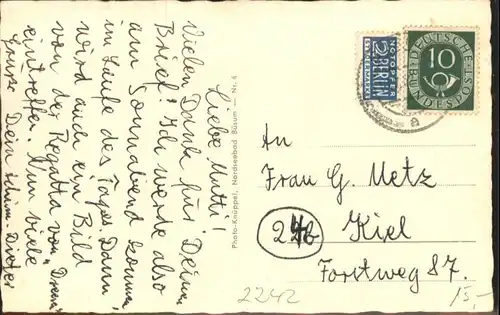 Liebe Mutti!
Vielen Dank für Deinen
Brief! Ich werde also
am Sonnabend kommen,
im Laufe des Tages. Dann
wird auch ein Bild
von der Regatta von
eintreffen. Nun viele
Grüsse Dein Dieter
Photo-Knüppel, Nordseebad Büsum — Nr. 4
NOTOPFER
2 BERLIN
STEUERMARKE
DEUTSCHE
10
BUNDESPOST
a
An
Frau G. Metz
(24b) Kiel
Forstweg 87.
2242
15,-